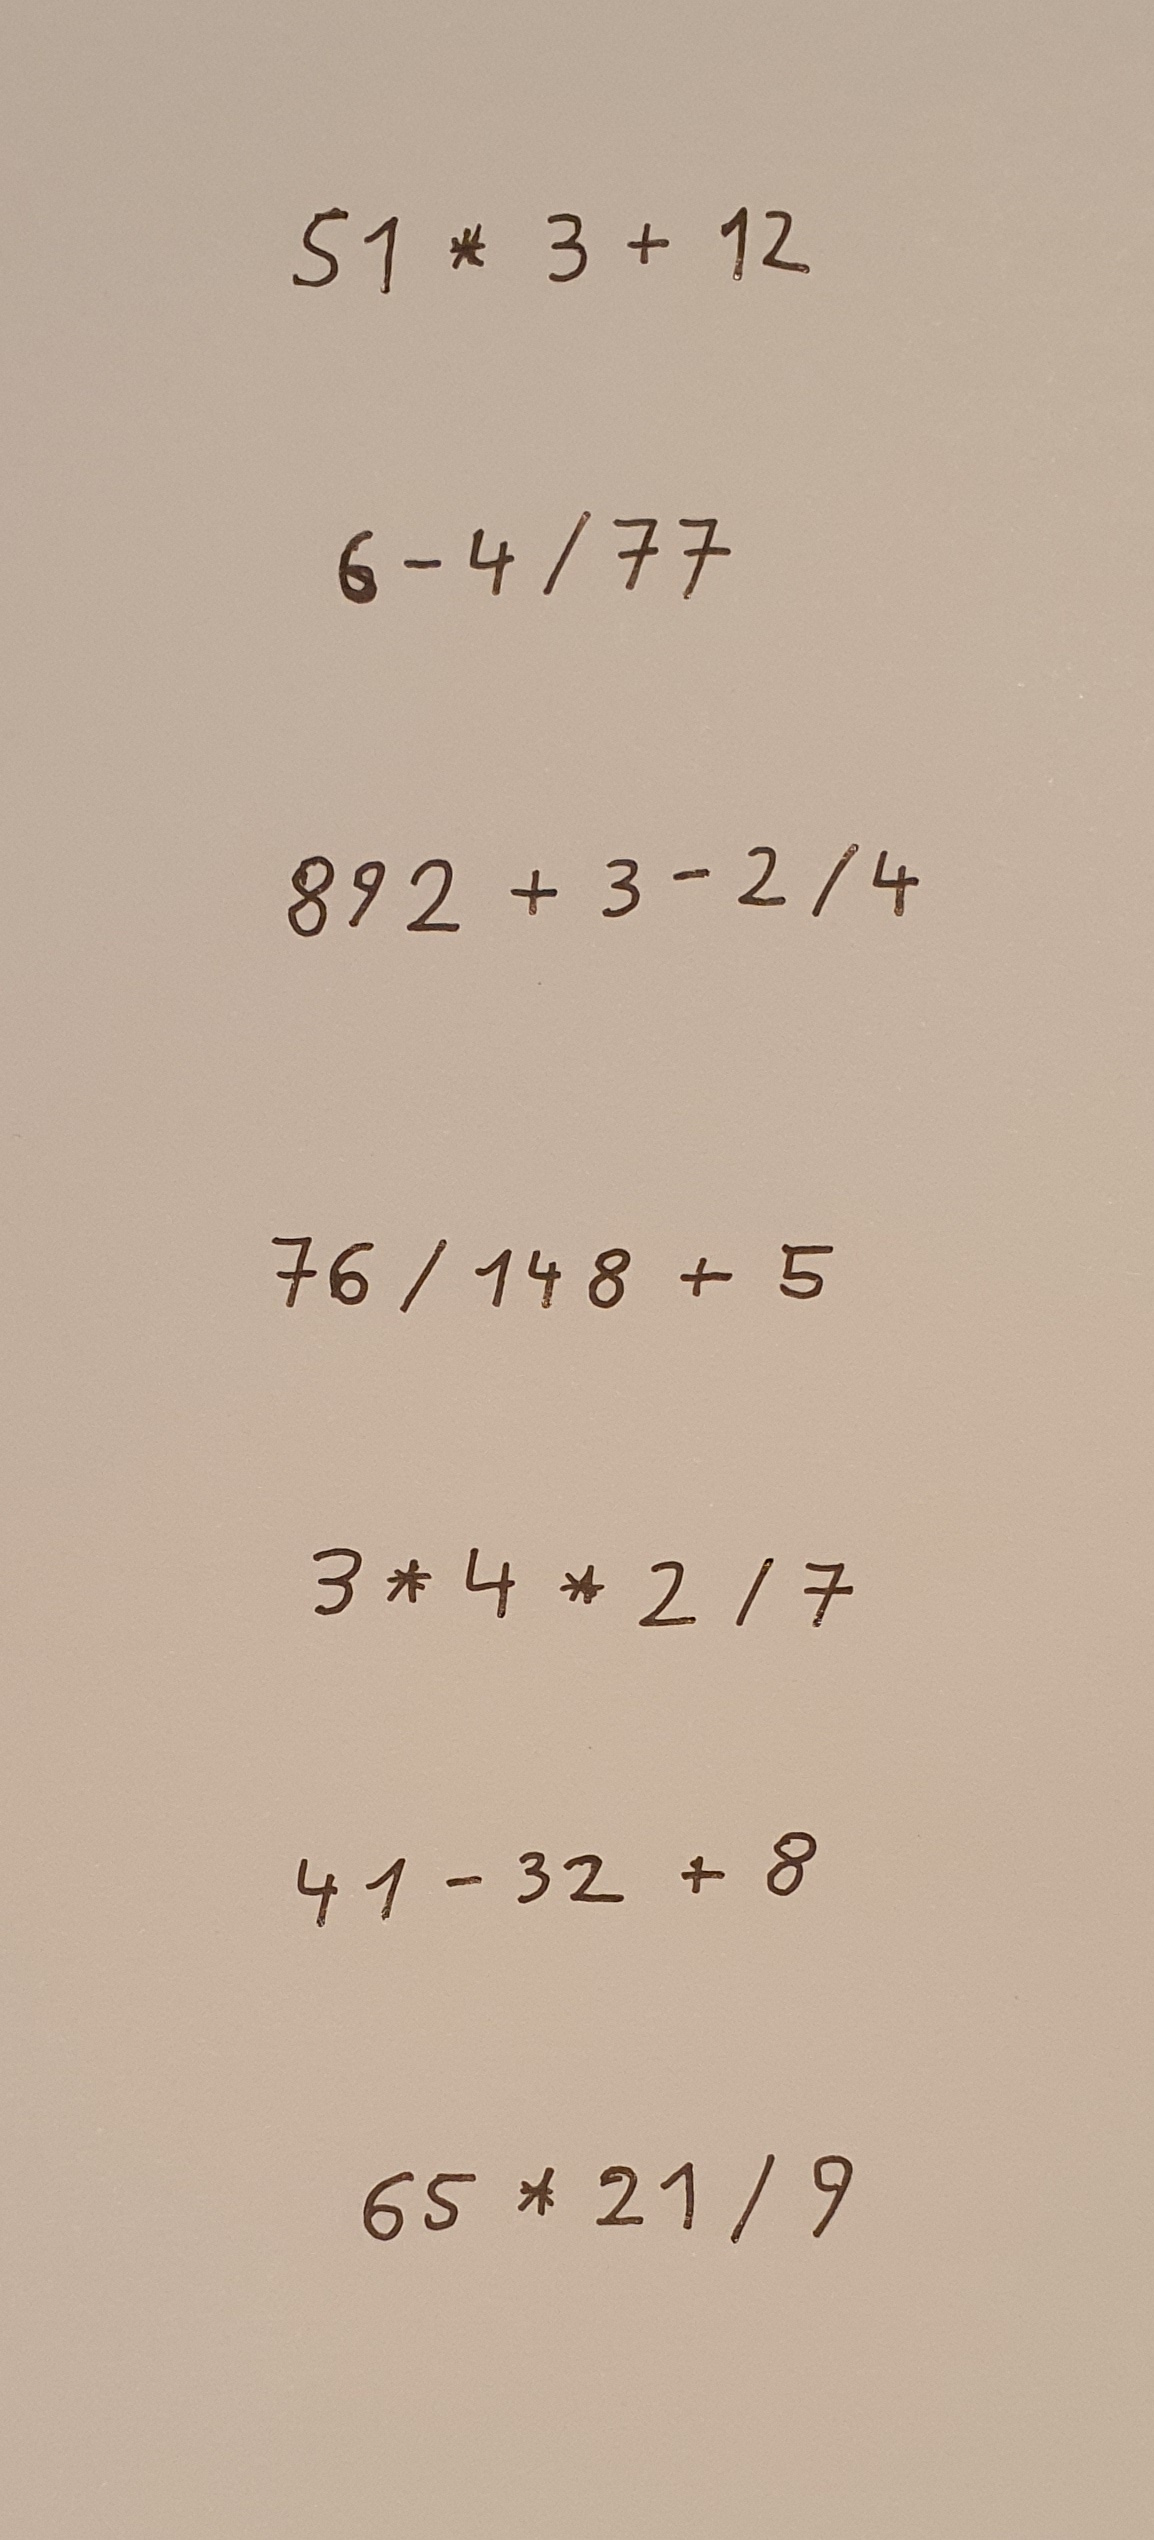 51 * 3 + 12
6 - 4 / 77
892 + 3 - 2 / 4
76 / 148 + 5
3 * 4 * 2 / 7
41 - 32 + 8
65 * 21 / 9